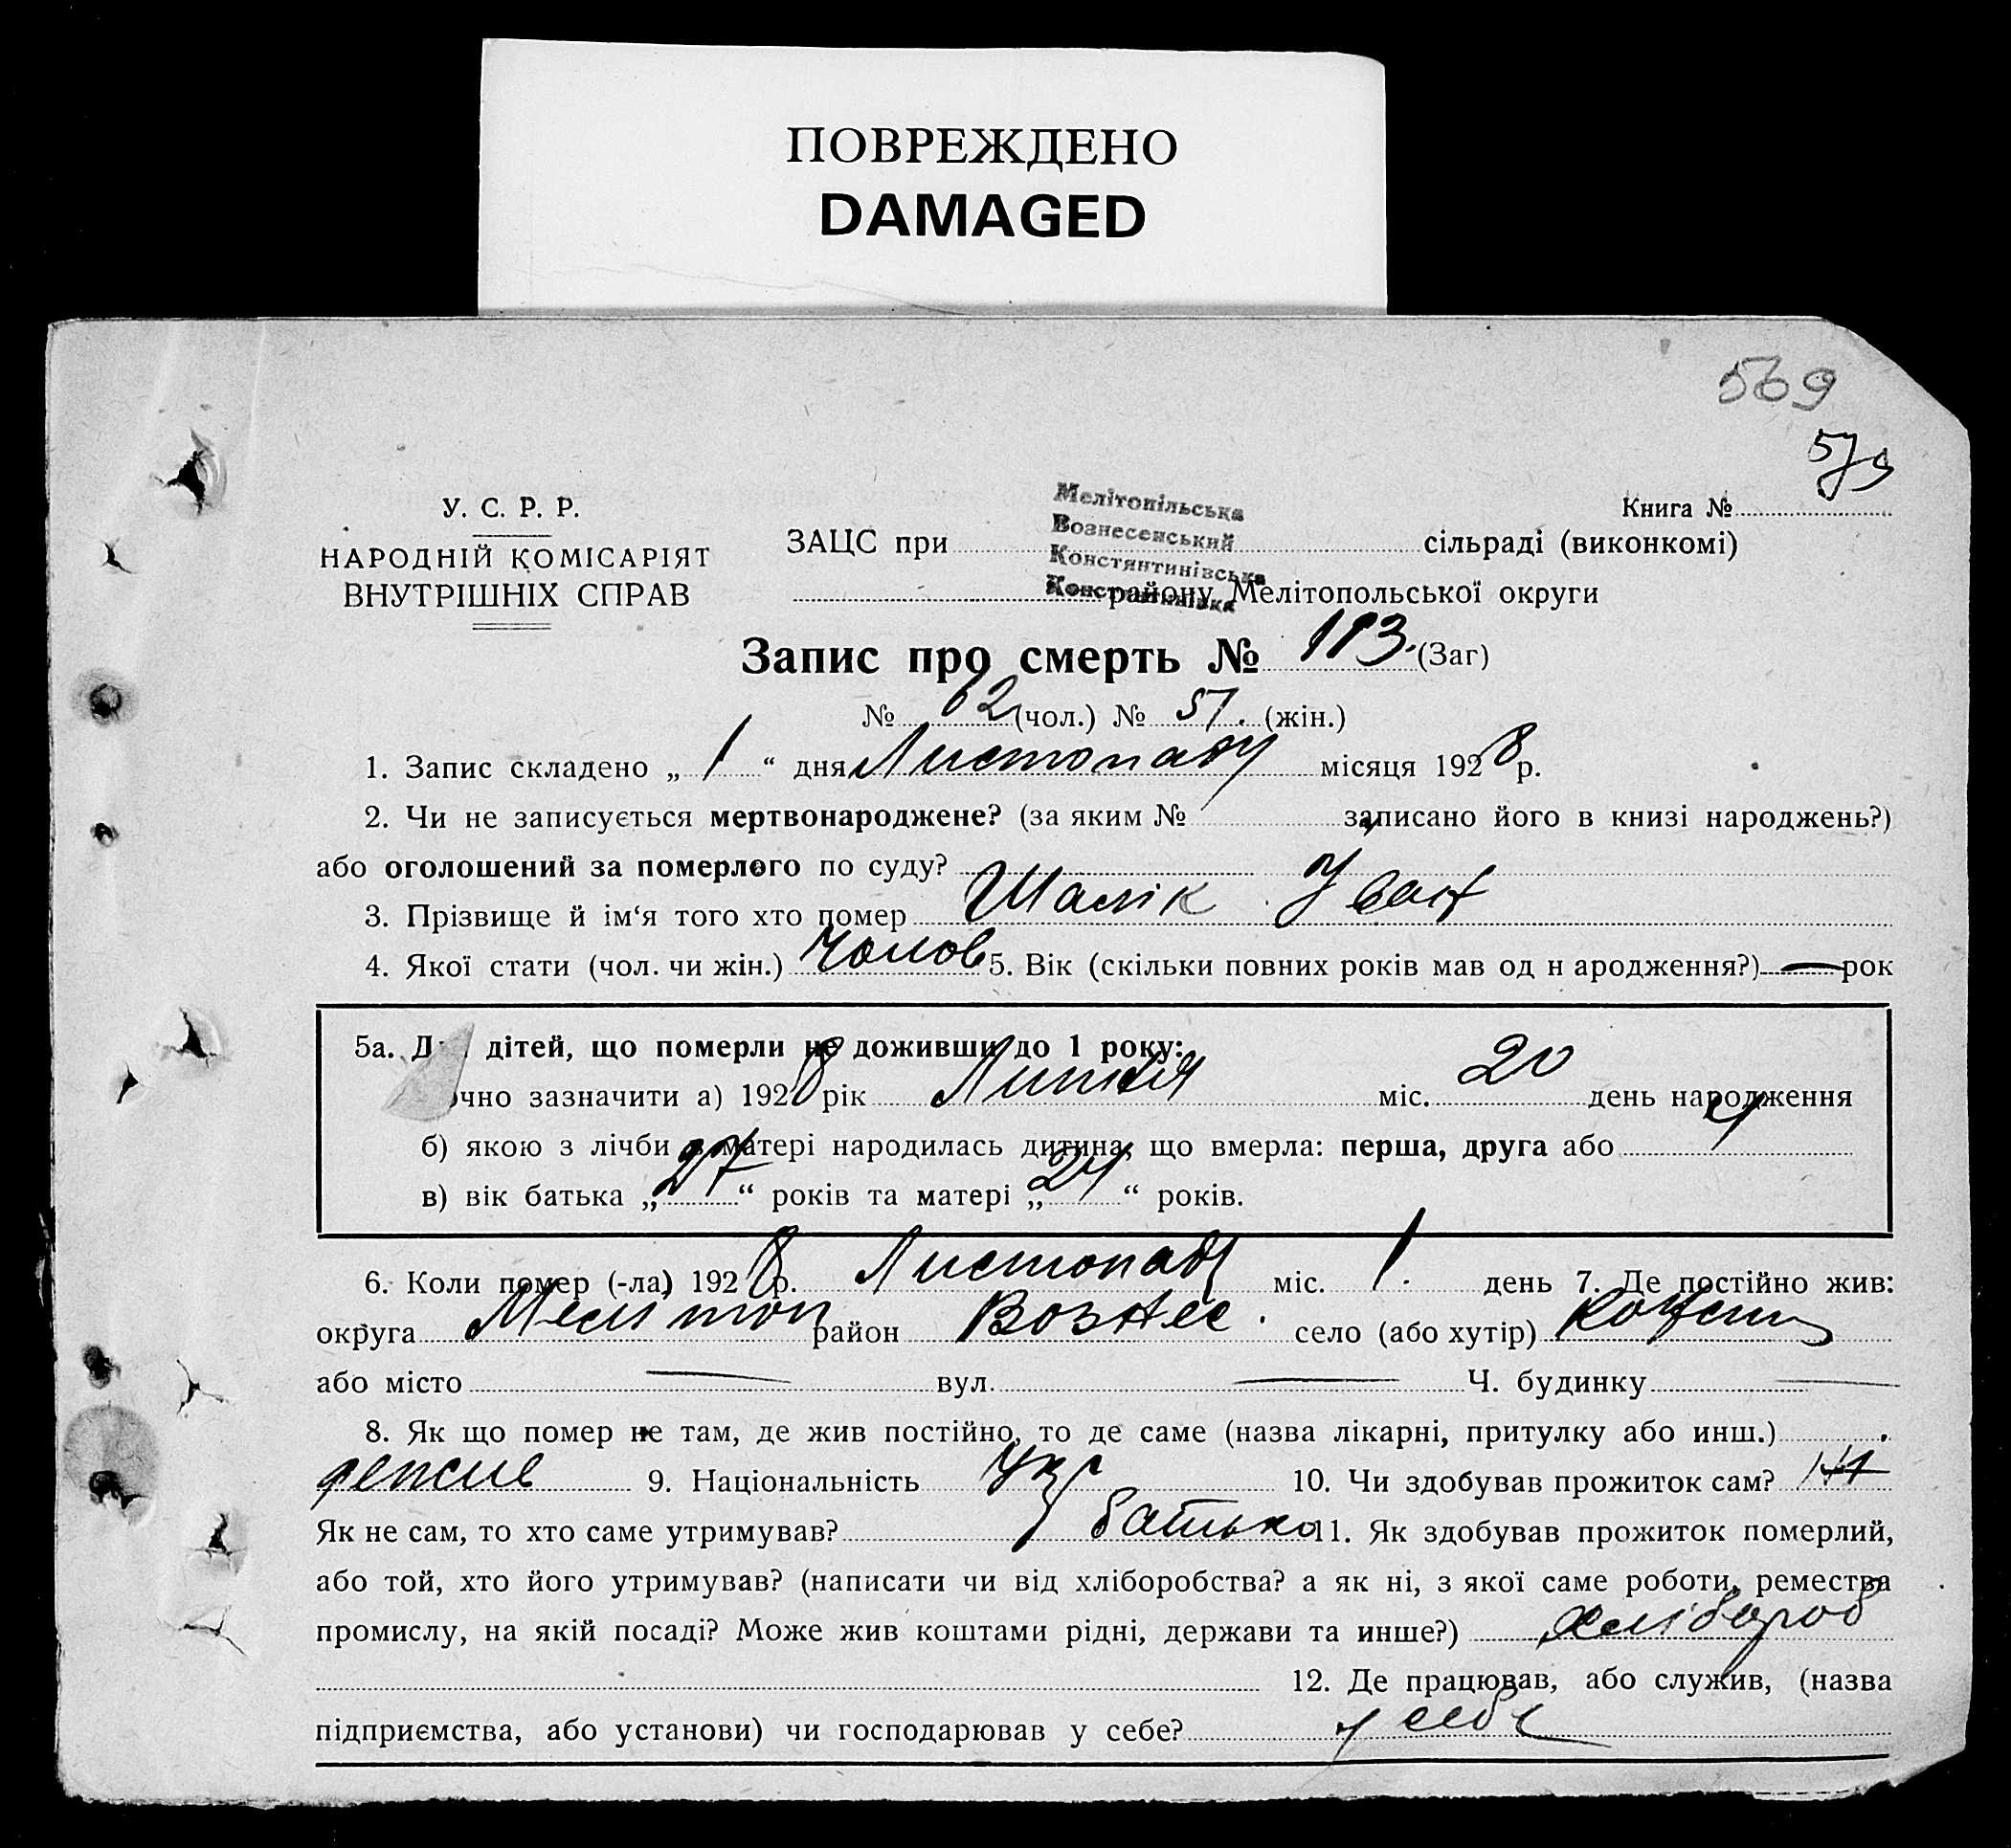 ПОВРЕЖДЕНО
DAMAGED
569
У. С. Р. Р.
НАРОДНІЙ КОМІСАРІЯТ
ВНУТРІШНІХ СПРАВ
Мелітопільська
Вознесенський
Констянтинівська
Константинівка
Книга №
ЗАЦС при сільраді (виконкомі)
району Мелітопольської округи
Запис про смерть № 113. (Заг)
№ 62 (чол.) № 51. (жін.)
1. Запис складено „ 1 “ дня Листопаду місяця 1928 р.
2. Чи не записується мертвонароджене? (за яким № записано його в книзі народжень?)
або оголошений за померлого по суду?
3. Прізвище й ім‘я того хто помер Шалік Іван
4. Якої стати (чол. чи жін.) Чолов 5. Вік (скільки повних років мав од н ародження?) — рок
5а. Д дітей, що померли не доживши до 1 року:
очно зазначити а) 1928 рік Липня міс. 20 день народження
б) якою з лічби в матері народилась дитина, що вмерла: перша, друга або 4
в) вік батька „ 27 “ років та матері „ 24 “ років.
6. Коли помер (-ла) 1928 р. Листопаду міс. 1 день 7. Де постійно жив:
округа Мелітоп район Вознес. село (або хутір)
або місто — вул. — Ч. будинку —
8. Як що помер не там, де жив постійно, то де саме (назва лікарні, притулку або инш.)
9. Національність Укр 10. Чи здобував прожиток сам?
Як не сам, то хто саме утримував? батько 11. Як здобував прожиток померлий,
або той, хто його утримував? (написати чи від хліборобства? а як ні, з якої саме роботи, ремества
промислу, на якій посаді? Може жив коштами рідні, держави та инше?) хлібороб
12. Де працював, або служив, (назва
підприємства, або установи) чи господарював у себе? у себе